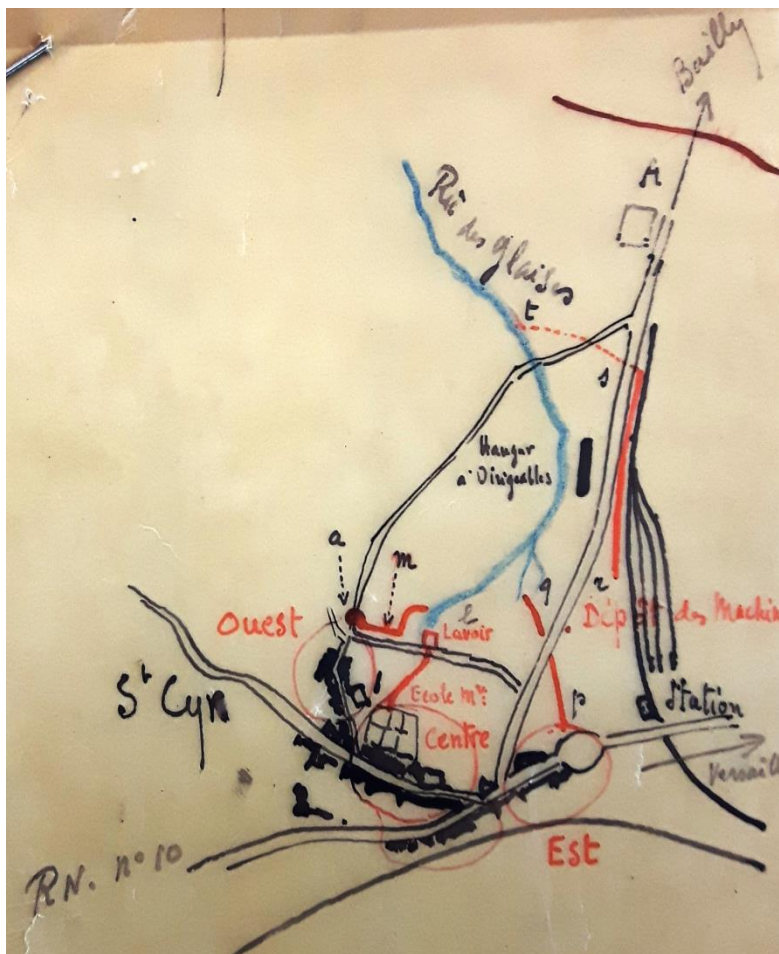 Bailly
A
Rû des glaises
t
s
Hangar
à Dirigeables
a
m
q
r
Ouest
l
Lavoir
Dépôt des Machin
St Cyr
1
Ecole Mre
p
Station
Centre
Versaill
2.
RN. n° 10
Est